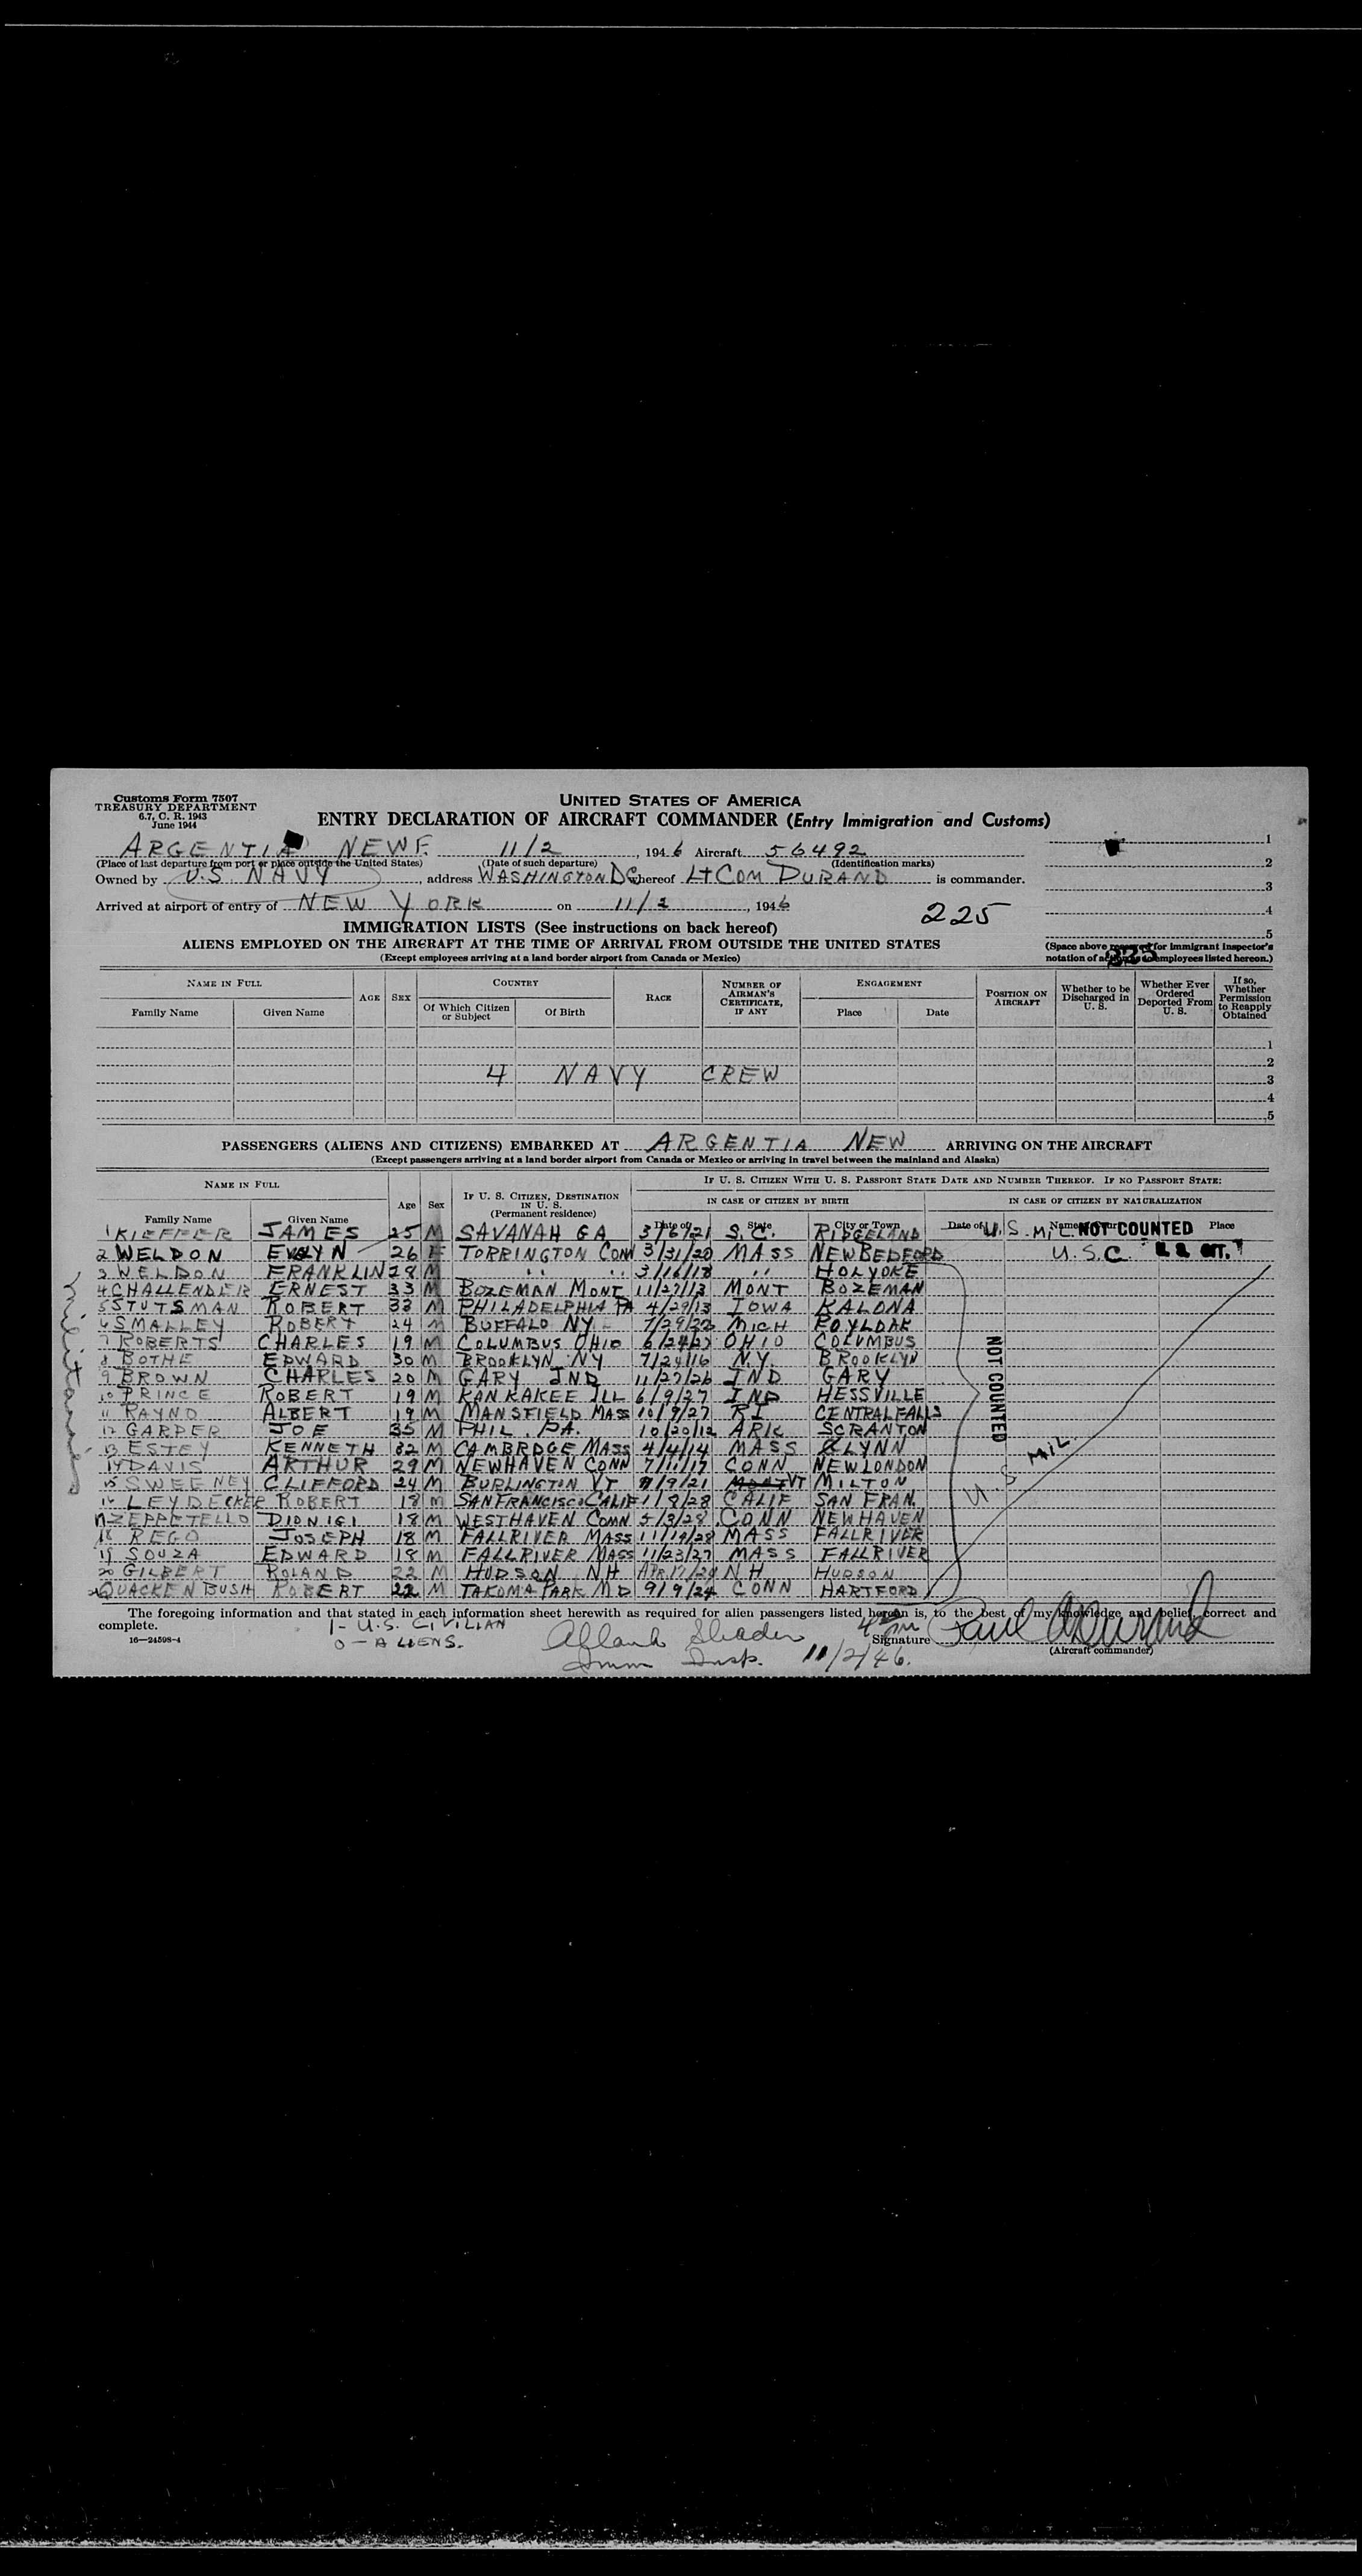 Customs Form 7507
TREASURY DEPARTMENT
6.7, C. R. 1943
June 1944
UNITED STATES OF AMERICA
ENTRY DECLARATION OF AIRCRAFT COMMANDER (Entry Immigration and Customs)
ARGENTIA NEWF. 11/2, 1946 Aircraft 56492
(Place of last departure from port or place outside the United States) (Date of such departure) (Identification marks)
Owned by U.S NAVY, address WASHINGTON DC whereof Lt COM DURAND is commander.
Arrived at airport of entry of NEW YORK on 11/2, 1946
1
2
3
4
5
225
(Space above reserved for immigrant inspector's
notation of action as to employees listed hereon.)
225
IMMIGRATION LISTS (See instructions on back hereof)
ALIENS EMPLOYED ON THE AIRCRAFT AT THE TIME OF ARRIVAL FROM OUTSIDE THE UNITED STATES
(Except employees arriving at a land border airport from Canada or Mexico)
NAME IN FULL AGE SEX COUNTRY RACE NUMBER OF AIRMAN'S CERTIFICATE, IF ANY ENGAGEMENT POSITION ON AIRCRAFT Whether to be Discharged in U. S. Whether Ever Ordered Deported From U. S. If so, Whether Permission to Reapply Obtained
Family Name Given Name Of Which Citizen or Subject Of Birth Place Date
1
2
4 NAVY CREW 3
4
5
PASSENGERS (ALIENS AND CITIZENS) EMBARKED AT ARGENTIA NEW ARRIVING ON THE AIRCRAFT
(Except passengers arriving at a land border airport from Canada or Mexico or arriving in travel between the mainland and Alaska)
NAME IN FULL Age Sex IF U. S. CITIZEN, DESTINATION IN U. S. (Permanent residence) IF U. S. CITIZEN WITH U. S. PASSPORT STATE DATE AND NUMBER THEREOF. IF NO PASSPORT STATE:
IN CASE OF CITIZEN BY BIRTH IN CASE OF CITIZEN BY NATURALIZATION
Family Name Given Name Date of State City or Town Date of Name of Court Place
1 KIEFFER JAMES 25 M SAVANAH GA 3/6/21 S.C. RIDGELAND U.S MIL NOT COUNTED
2 WELDON EVELYN 26 F TORRINGTON CONN 3/31/20 MASS NEWBEDFORD U.S.C U. S. CIT.
3 WELDON FRANKLIN 28 M " " 3/16/18 " HOLYOKE
4 CHALLENDER ERNEST 33 M BOZEMAN MONT 11/27/13 MONT BOZEMAN
5 STUTSMAN ROBERT 33 M PHILADELPHIA PA 4/29/13 IOWA KALONA
6 SMALLEY ROBERT 24 M BUFFALO NY 7/29/22 MICH ROYLOAK
7 ROBERTS CHARLES 19 M COLUMBUS OHIO 6/24/27 OHIO COLUMBUS
8 BOTHE EDWARD 30 M BROOKLYN NY 7/24/16 N.Y. BROOKLYN
9 BROWN CHARLES 20 M GARY IND 11/27/26 IND GARY
10 PRINCE ROBERT 19 M KANKAKEE ILL 6/9/27 IND HESSVILLE
11 RAYND ALBERT 19 M MANSFIELD MASS 10/9/27 RI CENTRAL FALLS
12 GARPER JOE 35 M PHIL. PA. 10/20/12 ARK SCRANTON
13 ESTEY KENNETH 32 M CAMBRDGE MASS 4/4/14 MASS LYNN
14 DAVIS ARTHUR 29 M NEWHAVEN CONN 7/11/17 CONN NEW LONDON
15 SWEENEY CLIFFORD 24 M BURLINGTON VT 9/9/21 VT MILTON
16 LEYDECKER ROBERT 18 M SANFRANCISCO CALIF 1/8/28 CALIF SAN FRAN.
17 ZEPPETELLO DIONIGI 18 M WESTHAVEN CONN 5/3/28 CONN NEWHAVEN
18 REGO JOSEPH 18 M FALLRIVER MASS 11/19/28 MASS FALLRIVER
19 SOUZA EDWARD 18 M FALLRIVER MASS 11/23/27 MASS FALLRIVER
20 GILBERT ROLAND 22 M HUDSON NH APR 17/24 NH HUDSON
21 QUACKENBUSH ROBERT 22 M TAKOMA PARK MD 9/9/24 CONN HARTFORD
NOT COUNTED
U.S MIL.
The foregoing information and that stated in each information sheet herewith as required for alien passengers listed hereon is, to the best of my knowledge and belief, correct and
complete.
1- U.S. CIVILIAN
0 - ALIENS.
16—24598-4
Imm Insp. 11/2/46.
Signature Paul A Durand
(Aircraft commander)